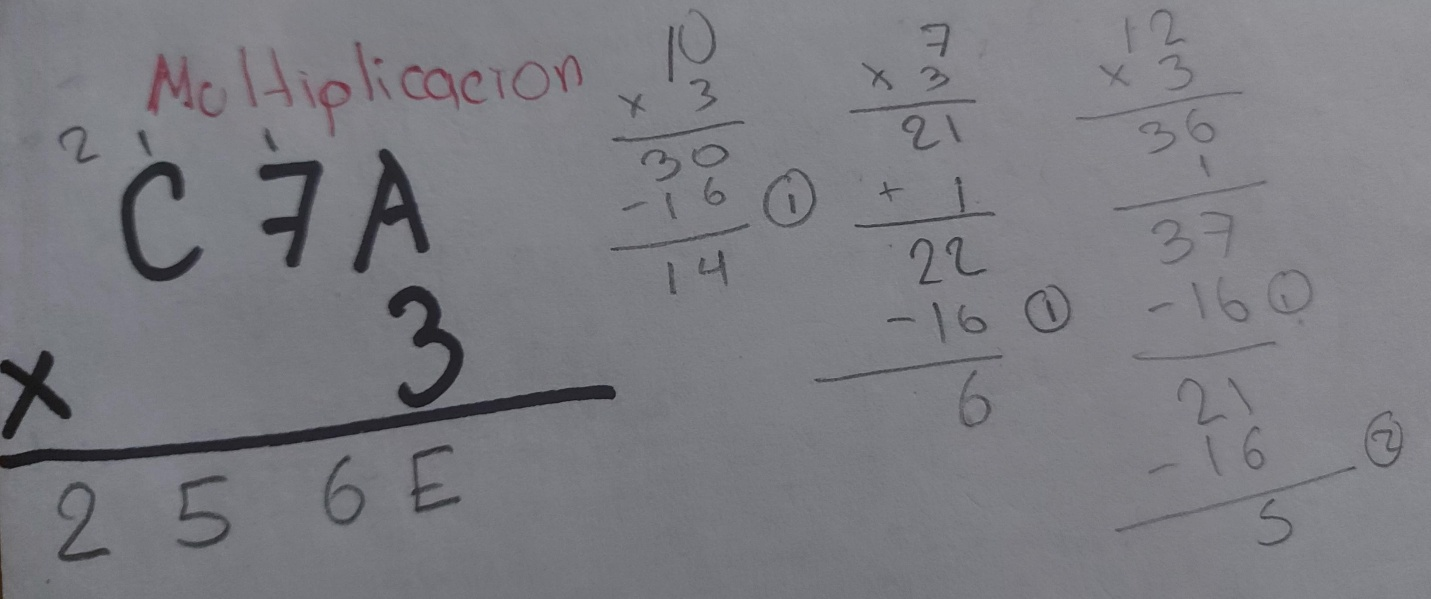 Moltiplicacion
2 1 1
C 7 A
x 3
2 5 6 E
10
x 3
30
-16 ①
14
7
x 3
21
+ 1
22
-16 ①
6
12
x 3
36
1
37
-16 ①
21
-16 ②
5